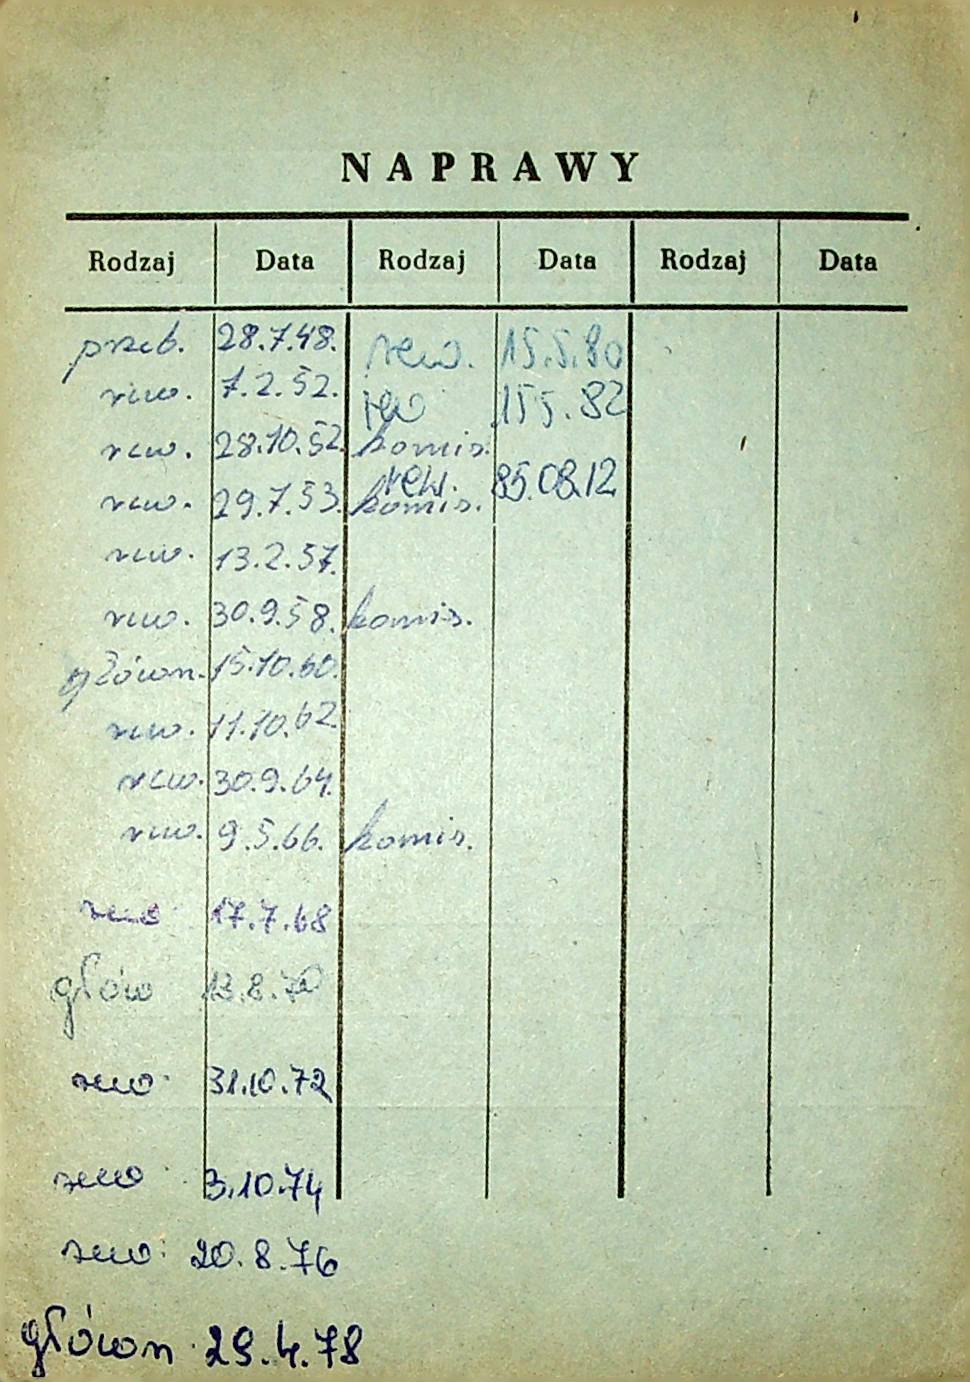 NAPRAWY
Rodzaj Data Rodzaj Data Rodzaj Data
przeb. 28.7.48. rew. 15.5.80
rew. 7.2.52. rew 15 5. 82
rew. 28.10.52. komis.
rew. 85.08.12
rew. 29.7.53. komis.
rew. 13.2.57.
rew. 30.9.58. komis.
główn. 15.10.60.
rew. 11.10.62.
rew. 30.9.64.
rew. 9.5.66. komis.
rew. 17.7.68
głów 13.8.70
rew. 31.10.72
rew. 3.10.74
rew. 20.8.76
główn 29.4.78